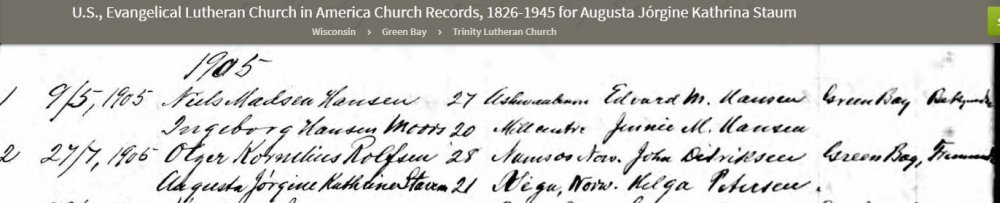 U.S., Evangelical Lutheran Church in America Church Records, 1826-1945 for Augusta Jórgine Kathrina Staum
Wisconsin > Green Bay > Trinity Lutheran Church
1905
1 9/5, 1905 Niels Madsen Hansen 27 Ashwaubenon Edvard M. Hansen Green Bay
Ingeborg Hansen Moors 20 Mill centre Jennie M. Hansen
2 27/7, 1905 Olger Kornelius Rolfsen 28 Namsos Norw. John Didriksen Green Bay,
Augusta Jórgine Kathrine Staum 21 Norw. Helga Petersen.